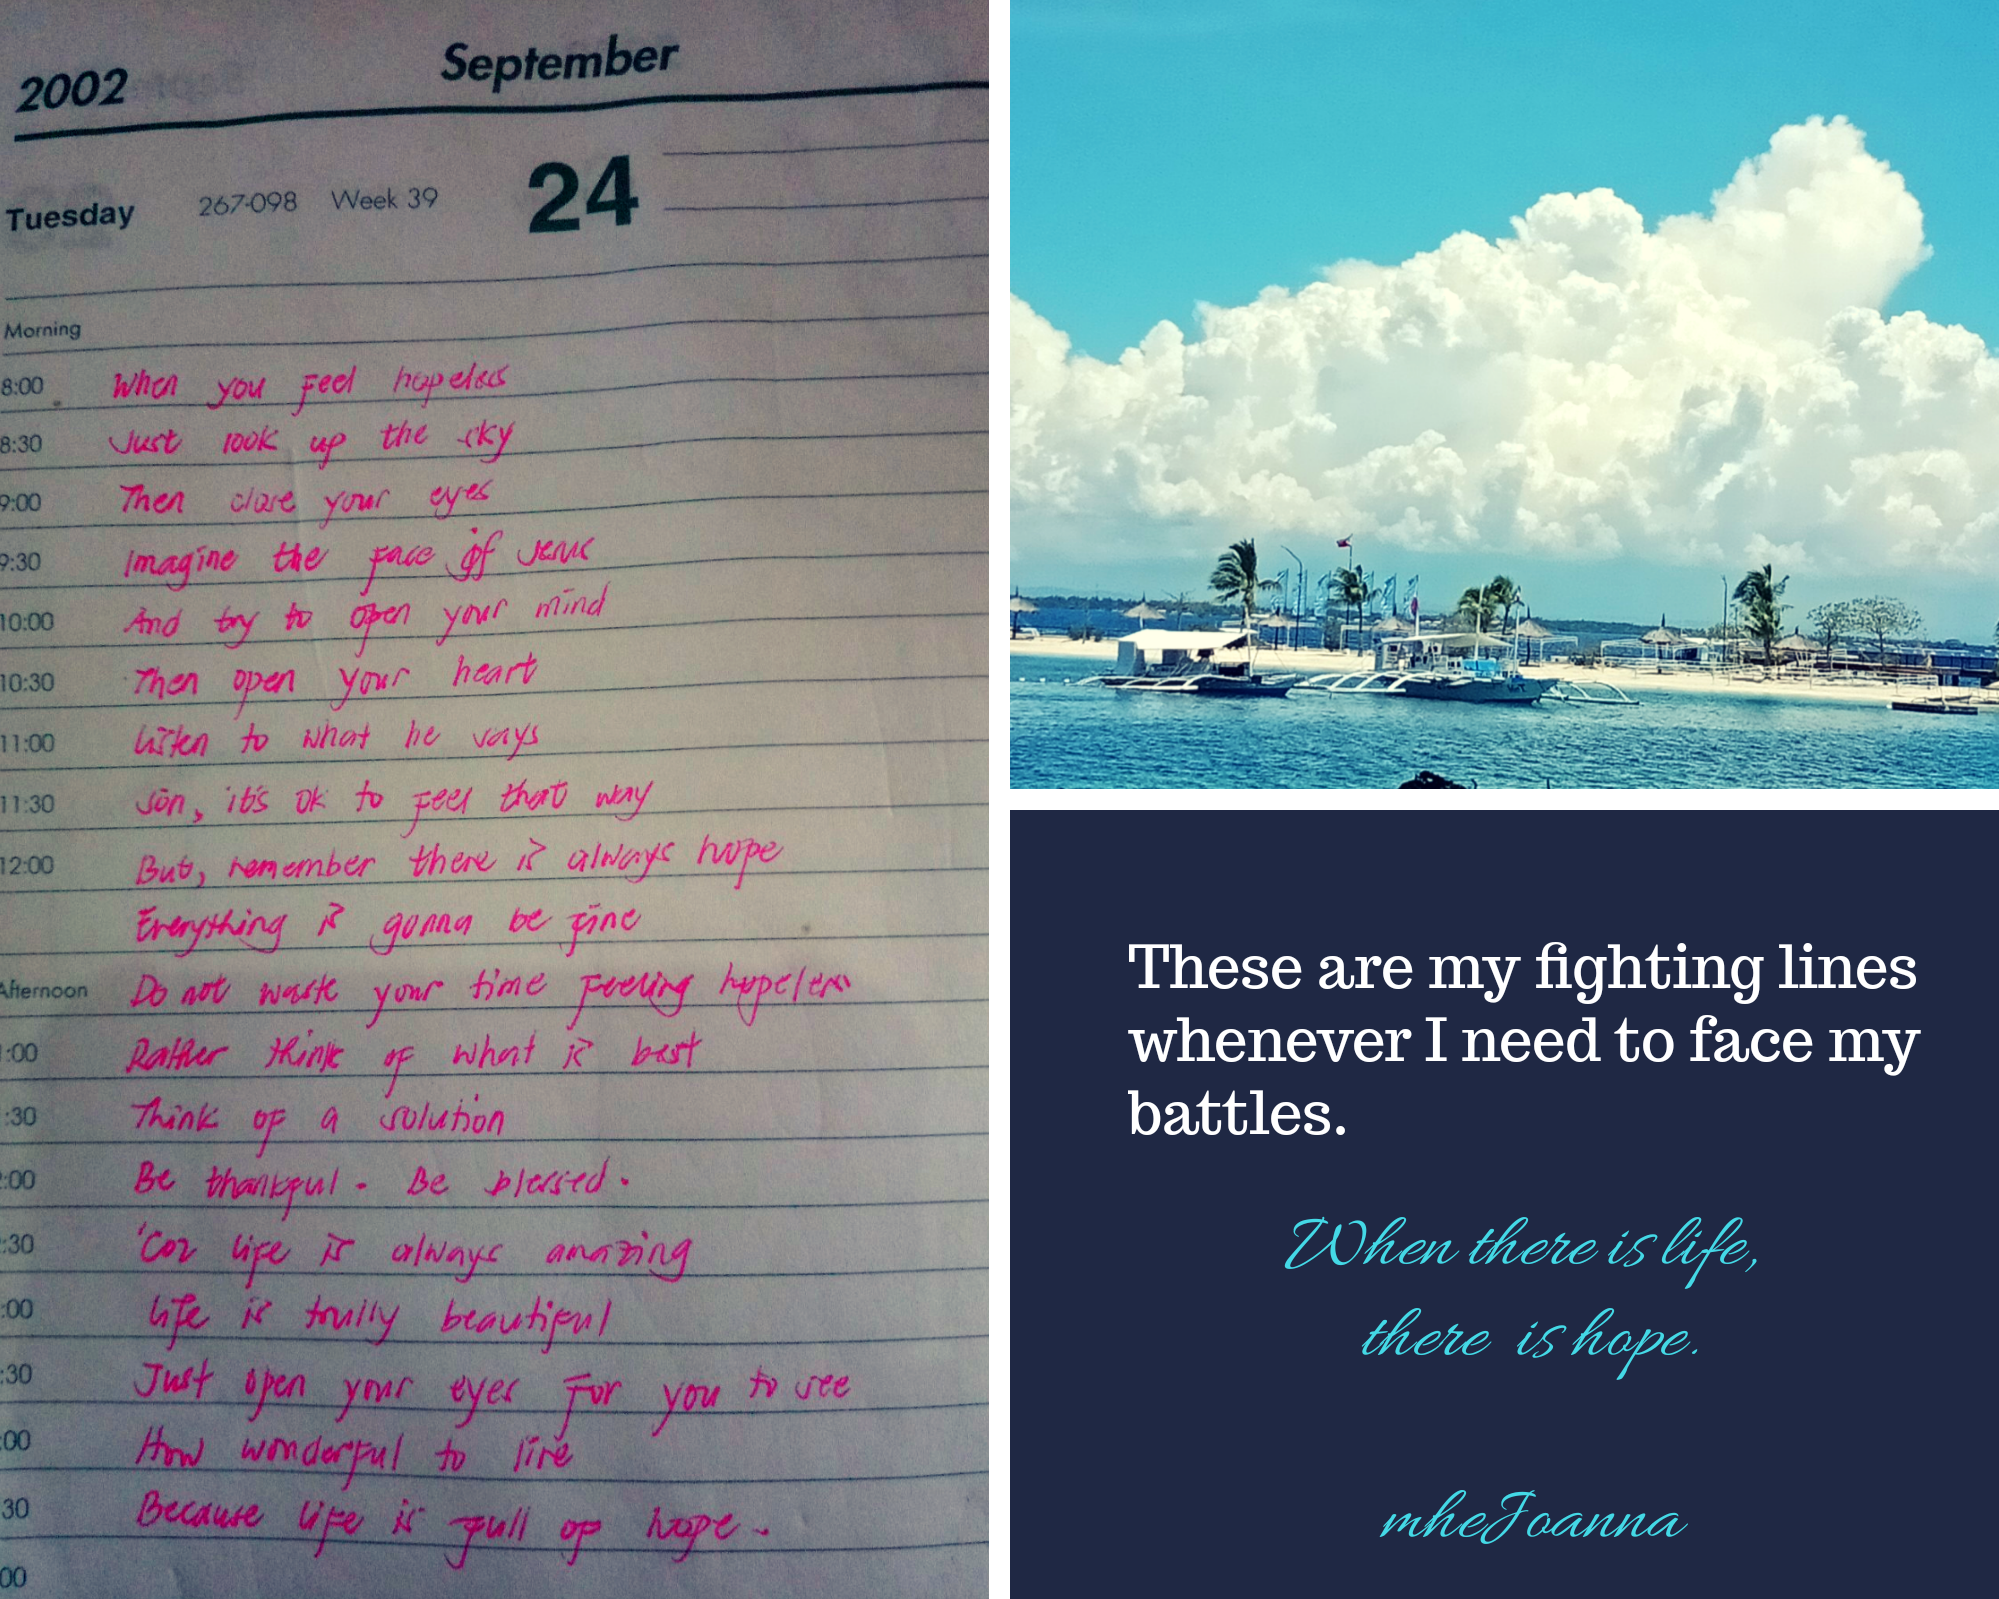 2002 September
Tuesday 267-098 Week 39 24
Morning
8:00 When you feel hopeless
8:30 Just look up the sky
9:00 Then close your eyes
9:30 Imagine the face of Jesus
10:00 And try to open your mind
10:30 Then open your heart
11:00 listen to what he says
11:30 Son, it's ok to feel that way
12:00 But, remember there is always hope
Everything is gonna be fine
Afternoon Do not waste your time feeling hopeless
:00 Rather think of what is best
:30 Think of a solution
:00 Be thankful. Be blessed.
:30 'Coz life is always amazing
:00 life is trully beautiful
:30 Just open your eyes for you to see
:00 How wonderful to live
30 Because life is full of hope.
00
These are my fighting lines
whenever I need to face my
battles.
When there is life,
there is hope.
mheJoanna